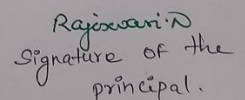 Rajeswari.N
Signature of the
principal.